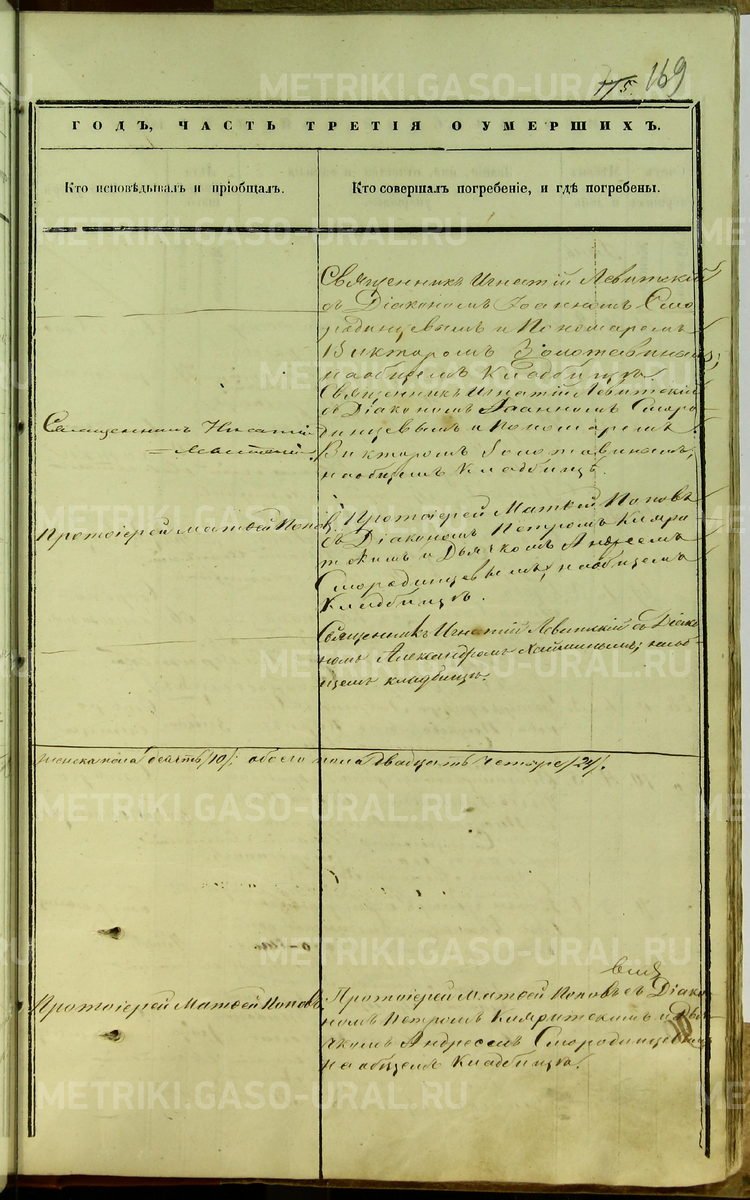 175. 169
ГОДЪ, ЧАСТЬ ТРЕТІЯ О УМЕРШИХЪ.
Кто исповѣдывалъ и пріобщалъ.
Кто совершалъ погребеніе, и гдѣ погребены.
Священникъ Игнатій Левитскій
съ Діакономъ Іоанномъ Смо
родинцевымъ и Пономаремъ
Викторомъ Золотавинымъ;
на общемъ Кладбищѣ.
Священникъ Игнатій Левитскій
съ Діакономъ Іоанномъ Сморо-
динцевымъ и Пономаремъ
Викторомъ Золотавинымъ;
на общемъ Кладбищѣ.
Священникъ Игнатій
Протоіерей Матвѣй Поповъ
Протоіерей Матвѣй Поповъ
съ Діакономъ Петромъ
и Дьячкомъ Андреемъ
Смородинцевымъ; на общемъ
Кладбищѣ.
Священникъ Игнатій Левитскій съ Діако
номъ Александромъ на об-
щемъ кладбищѣ.
женска пола десять /10/; обоего пола двадцать четыре /24/.
Протоіерей Матвѣй Поповъ.
Протоіерей Матвѣй Поповъ съ Діако
номъ Петромъ и Дья
чкомъ Андреемъ Смородинцевымъ
на общемъ Кладбищѣ.
METRIKI.GASO-URAL.RU